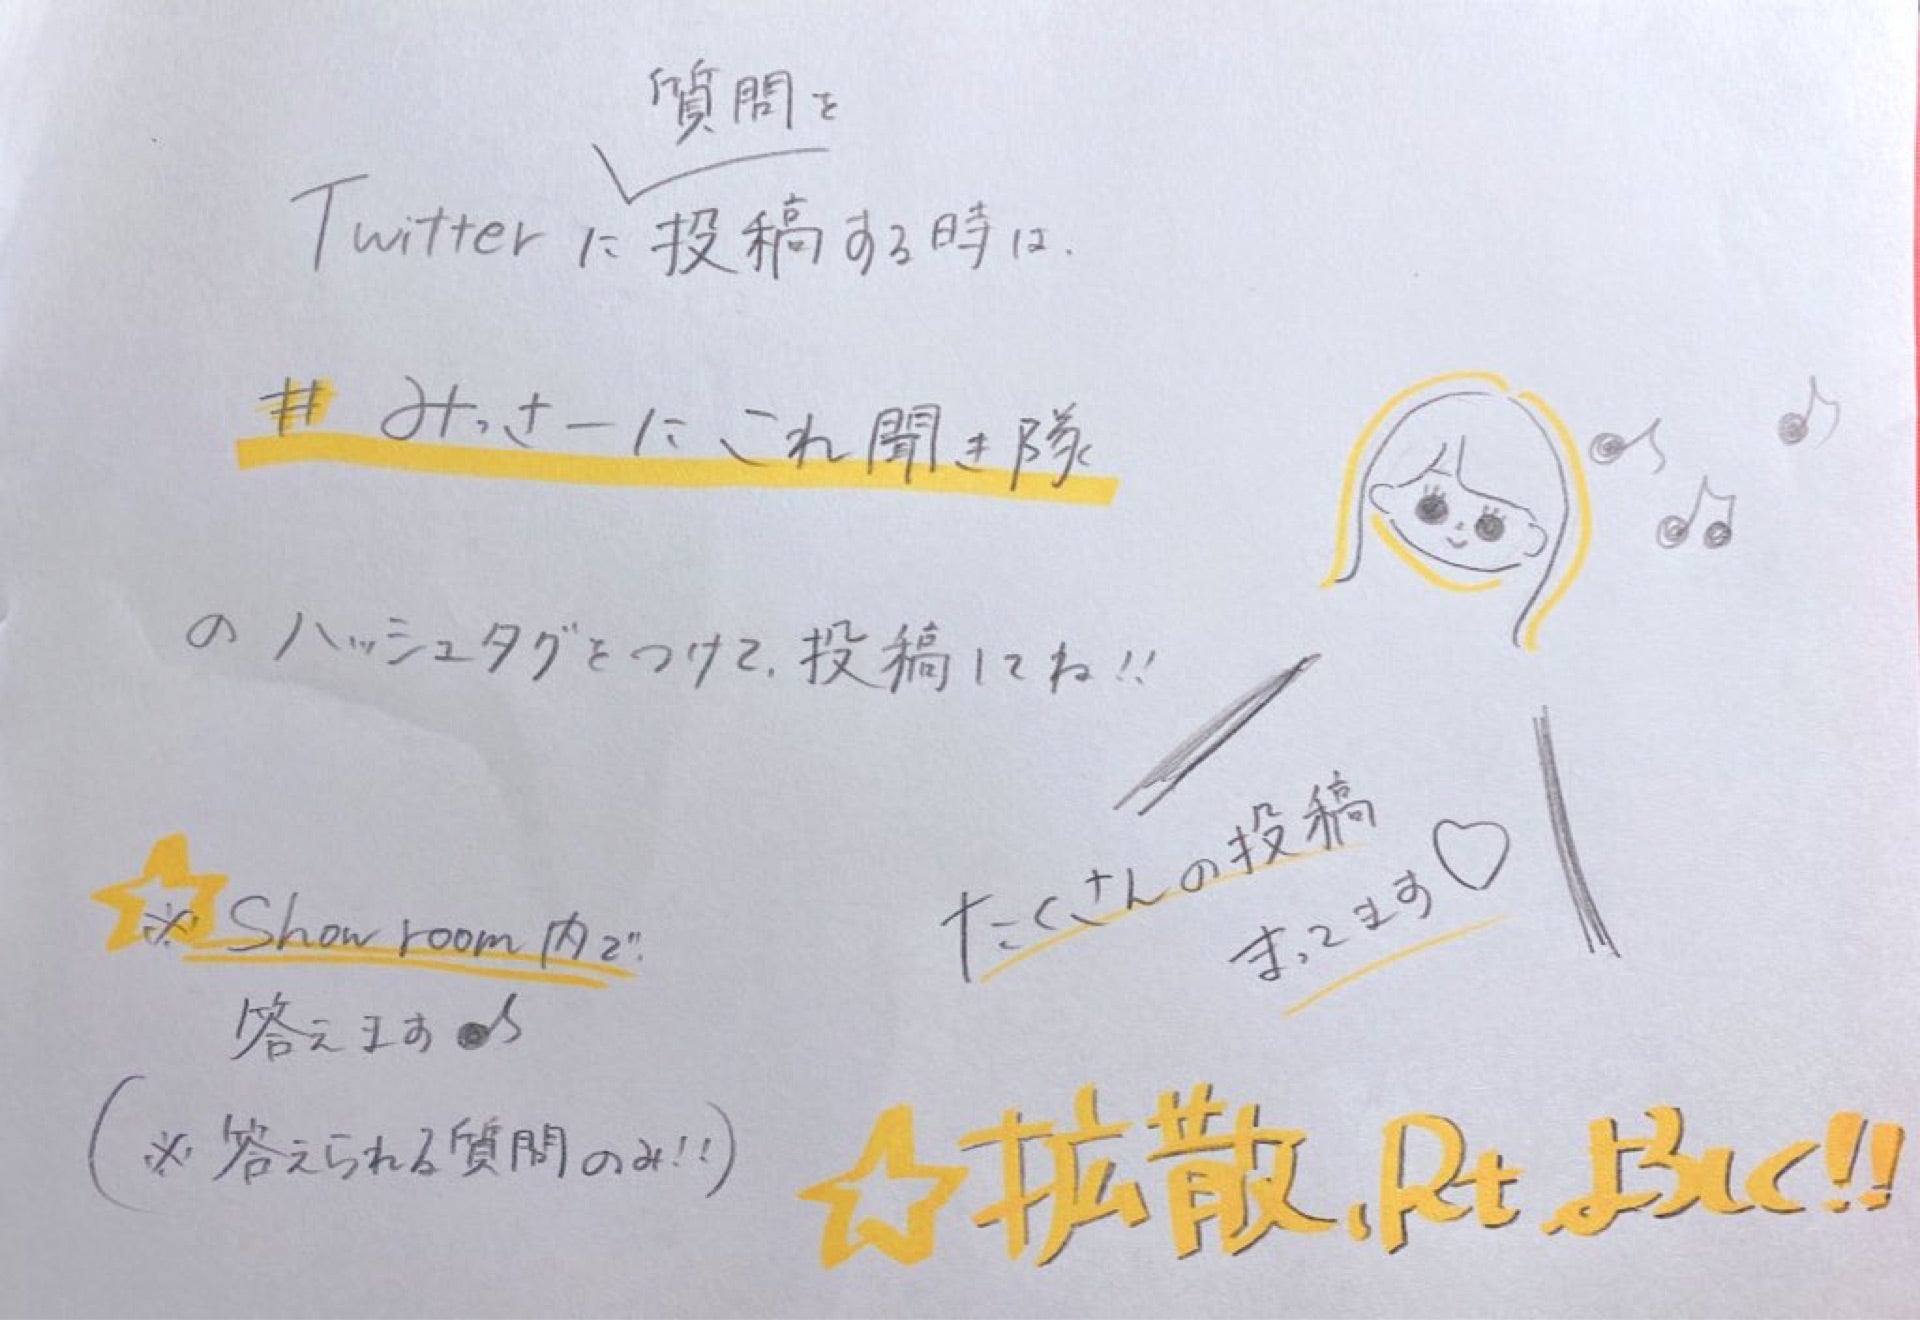 質問を
Twitterに投稿する時は、
# みっさーにこれ聞き隊
のハッシュタグをつけて、投稿してね!!
たくさんの投稿
まってます♡
※ Showroom内で
答えます♪
(※ 答えられる質問のみ!!)
☆拡散、Rtよろしく!!